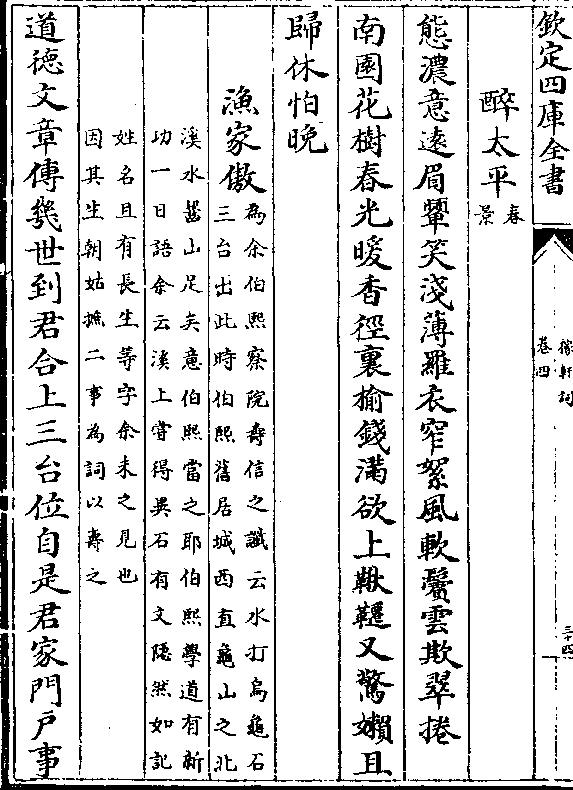 欽定四庫全書
稼軒詞
卷四
三十四
醉太平春
景
態濃意遠眉顰笑淺薄羅衣窄絮風軟鬢雲欺翠捲
南園花樹春光暖香徑裏榆錢滿欲上鞦韆又驚嬾且
歸休怕晚
漁家傲為余伯熙察院壽信之讖云水打烏龜石
三台出此時伯熙舊居城西直龜山之北
溪水齧山足矣意伯熙當之耶伯熙學道有新
功一日語余云溪上嘗得異石有文隱然如記
姓名且有長生等字余未之見也
因其生朝姑摭二事為詞以壽之
道德文章傳幾世到君合上三台位自是君家門戶事